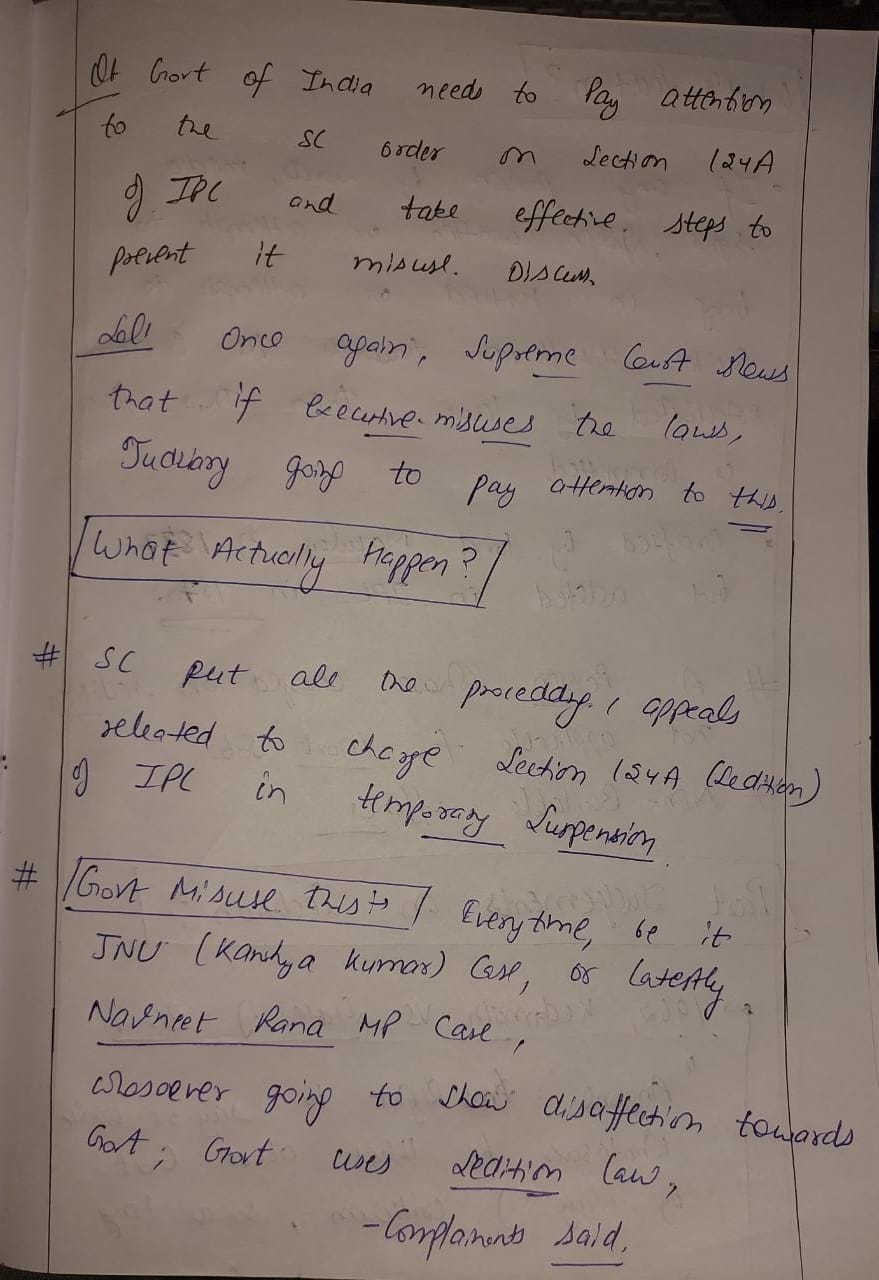 Q1 Govt of India needs to Pay attention
to the SC order on Section 124A
of IPC and take effective. steps to
prevent it misuse. Discuss,
Sol: Once again, Supreme Court shows
that if executive misuses the laws,
Judiciary going to pay attention to this.
What Actually Happen?
# SC put all the proceddig, appeals
releated to charge Section 124A (Sedition)
of IPC in temporary Suspension
# Govt Misuse this → Everytime, be it
JNU (Kanhya Kumar) Case, or Latestly
Navneet Rana MP Case,
whosoever going to show disaffection towards
Govt, Govt uses Sedition law,
- Complainents said.